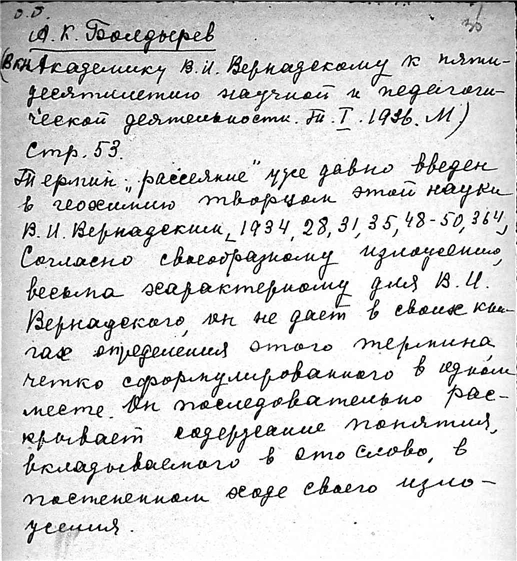 А. К. Болдырев
(В кн. Академику В. И. Вернадскому к пяти-
десятилетию научной и педагоги-
ческой деятельности. Т. I. 1936. М)
Стр. 53.
Термин „рассеяние" уже давно введен
в геохимию творцом этой науки
В. И. Вернадским, 1934, 28, 31, 35, 48-50, 364,
Согласно своеобразному изложению,
весьма характерному для В. И.
Вернадского, он не дает в своих кни-
гах определения этого термина,
четко сформулированного в одном
месте. Он последовательно рас-
крывает содержание понятия,
вкладываемого в это слово, в
постепенном ходе своего изло-
жения.